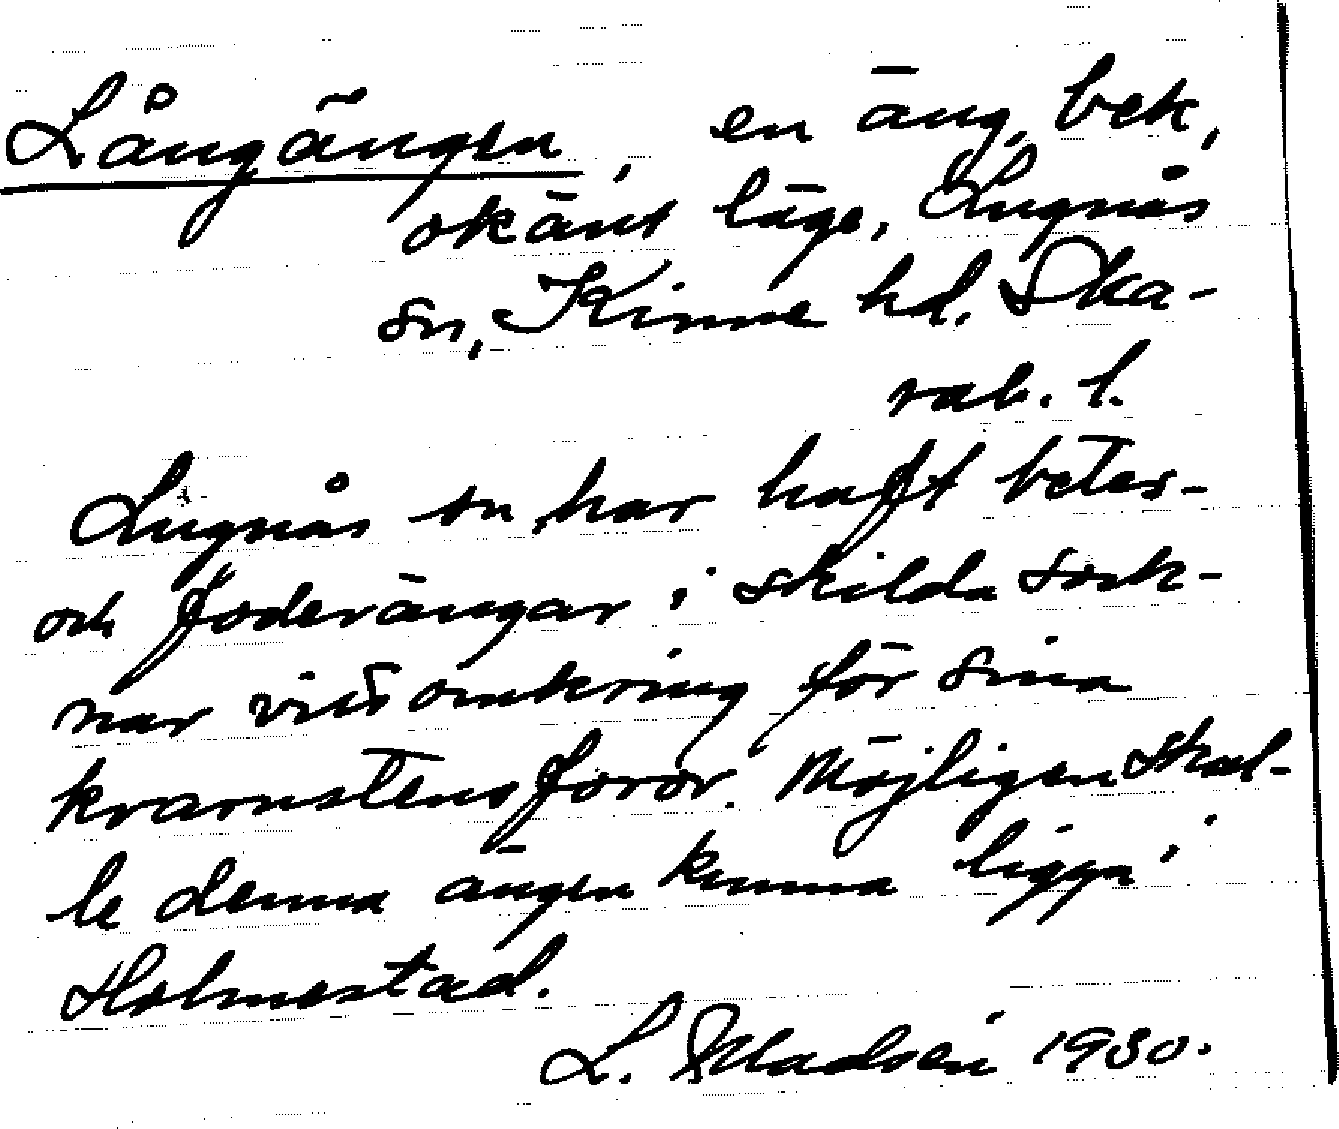 Långängen, en äng, bek,
okänt läge, Lugnås
sn, Kinne hd. Ska-
rab. l.
Lugnås sn, har haft betes-
och foderängar i skilda sock-
nar vitt omkring för sina
kvarnstensforor. Möjligen skul-
le denna ängen kunna ligga i
Holmestad.
L. Madsén 1930.